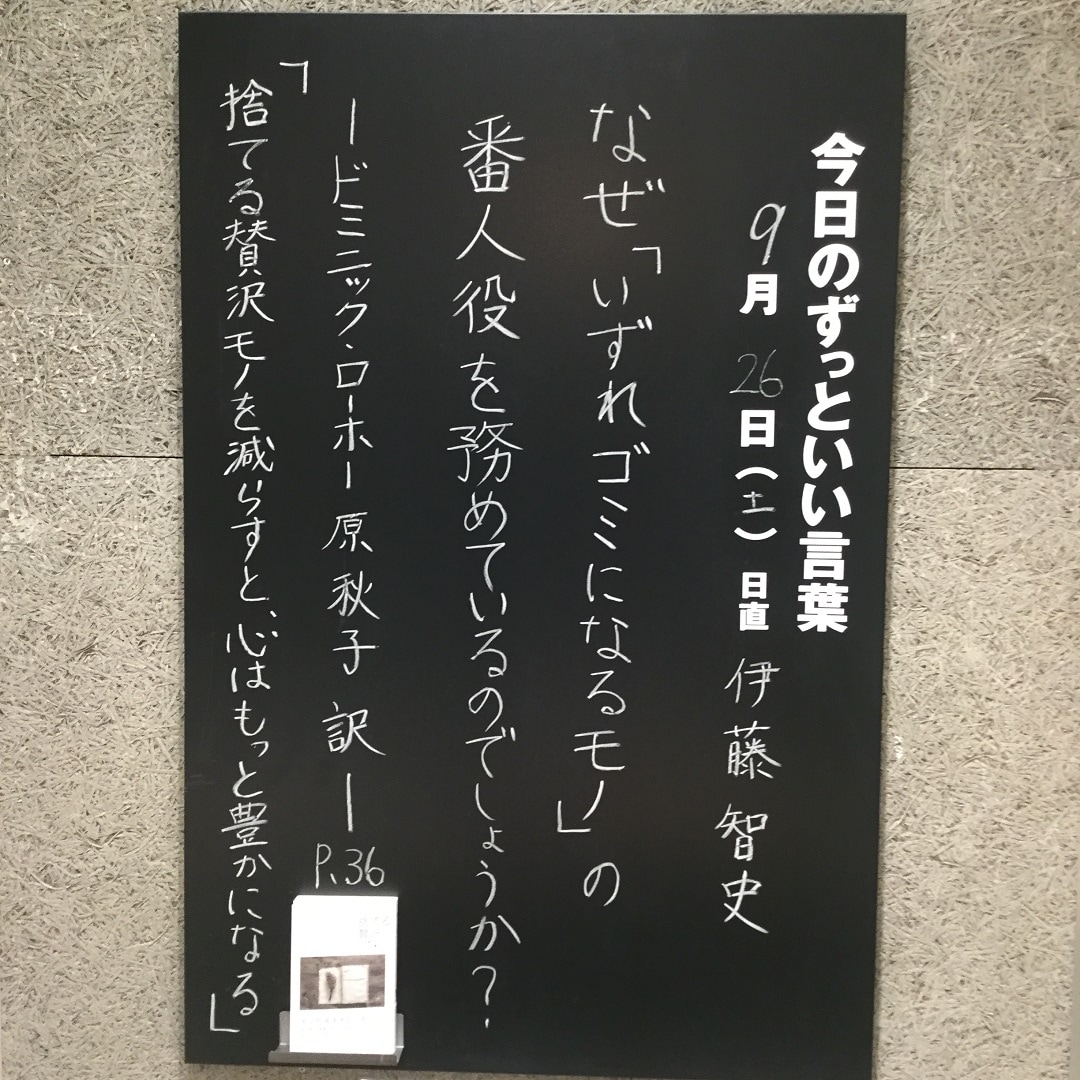 今日のずっといい言葉
9月26日(土) 日直 伊藤 智史
なぜ「いずれゴミになるモノ」の
番人役を務めているのでしょうか?
ードミニック・ローホー 原 秋子 訳ー P.36
「捨てる贅沢モノを減らすと、心はもっと豊かになる」